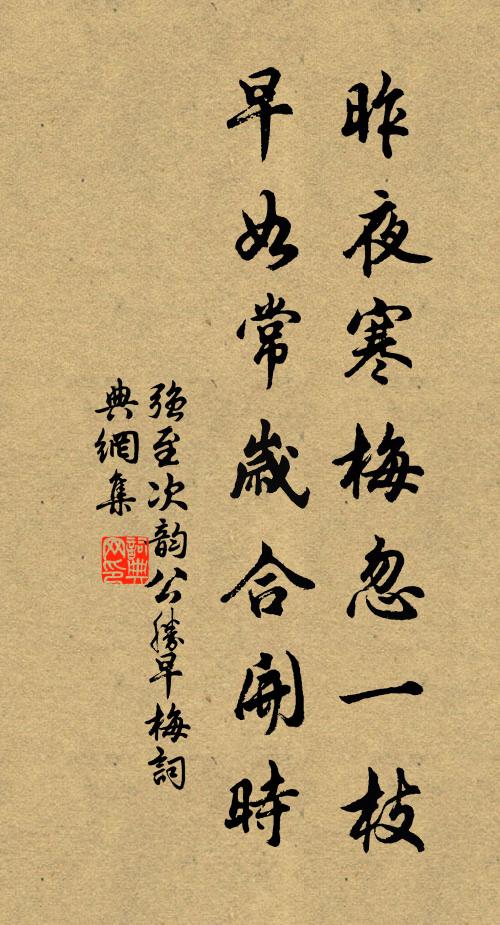 昨夜寒梅忽一枝
早如常歲合開時
強至次韵公勝早梅詞
典網集
詞典
网印